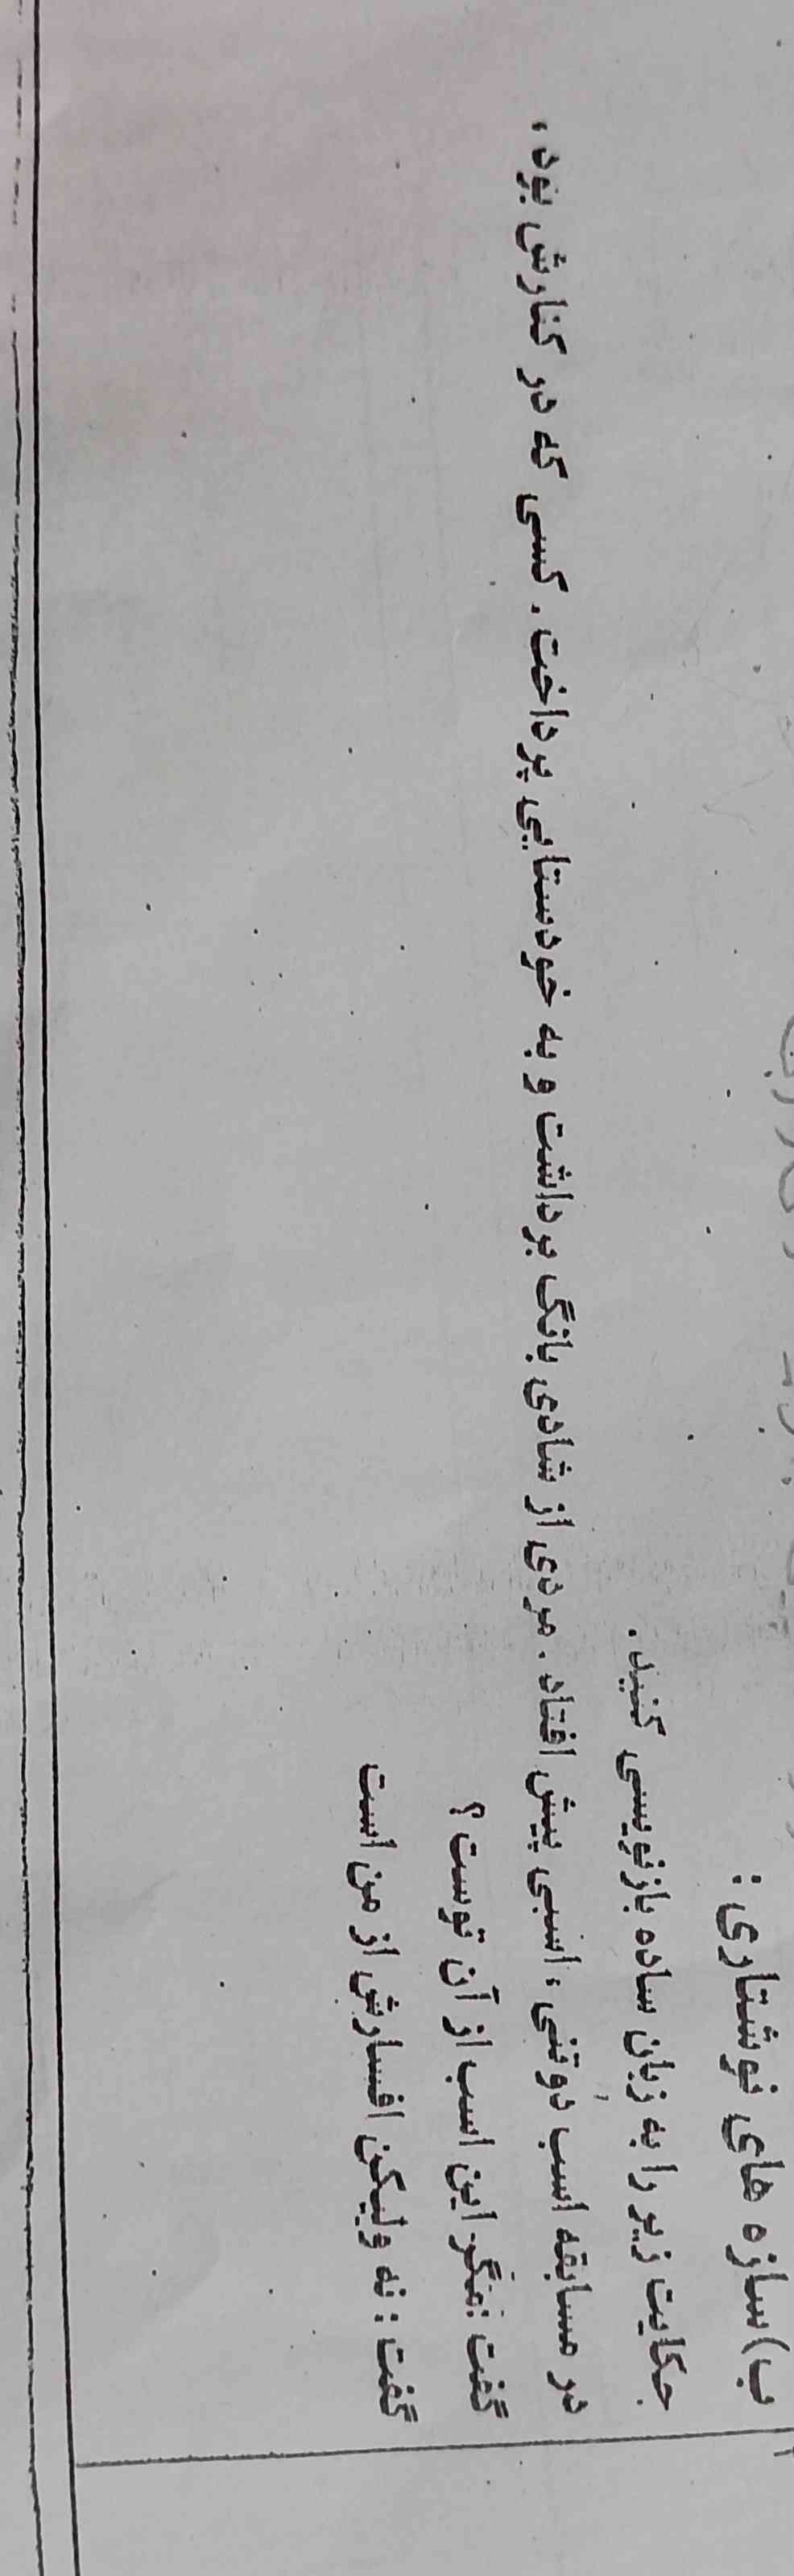 ب) سازه های نوشتاری :
حکایت زیر را به زبان ساده بازنویسی کنید.
در مسابقه اسب دوتنی ، اسبی پیش افتاد. مردی از شادی بانگ برداشت و به خودستایی پرداخت. کسی که در کنارش بود،
گفت : مگر این اسب از آن توست؟
گفت : نه ولیکن افسارش از من است